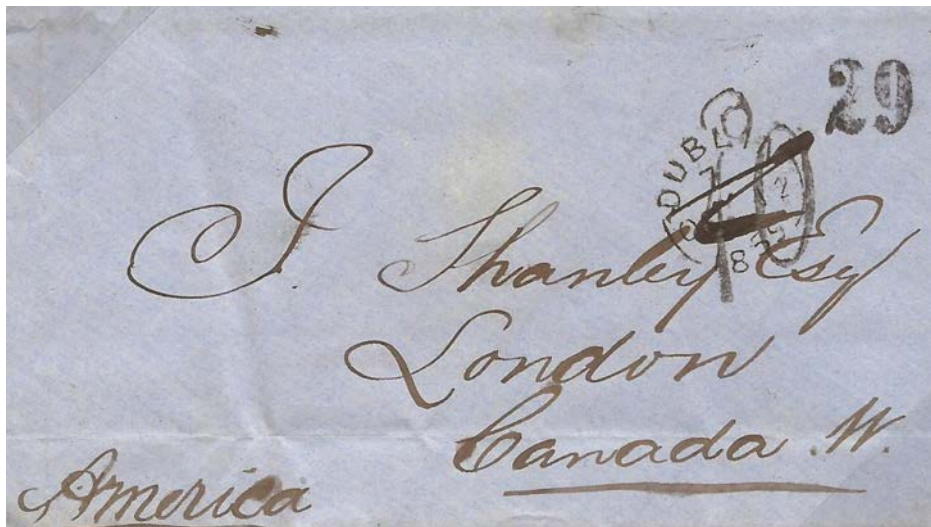 29
DUBLI
J Shanley Esq
London
Canada W.
America